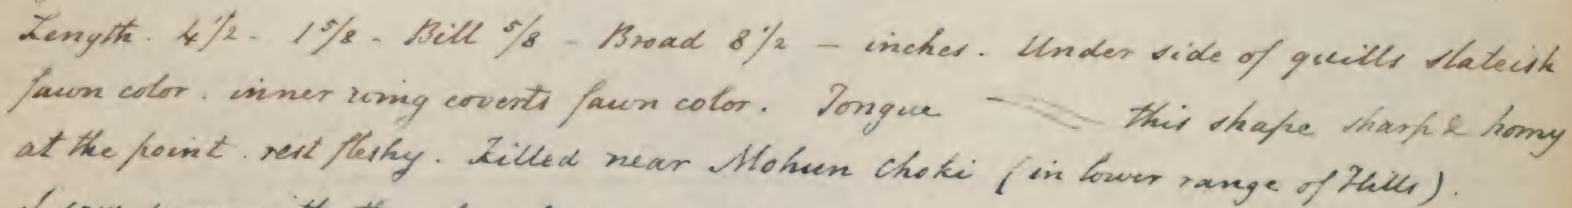 Length. 4 1/2 - 1 5/8 - Bill 5/8 - Broad 8 1/2 - inches. Under side of quills slateish
fawn color. inner wing coverts fawn color. Tongue this shape sharp & horny
at the point. rest fleshy. Killed near Mohun Choki (in lower range of Hills).